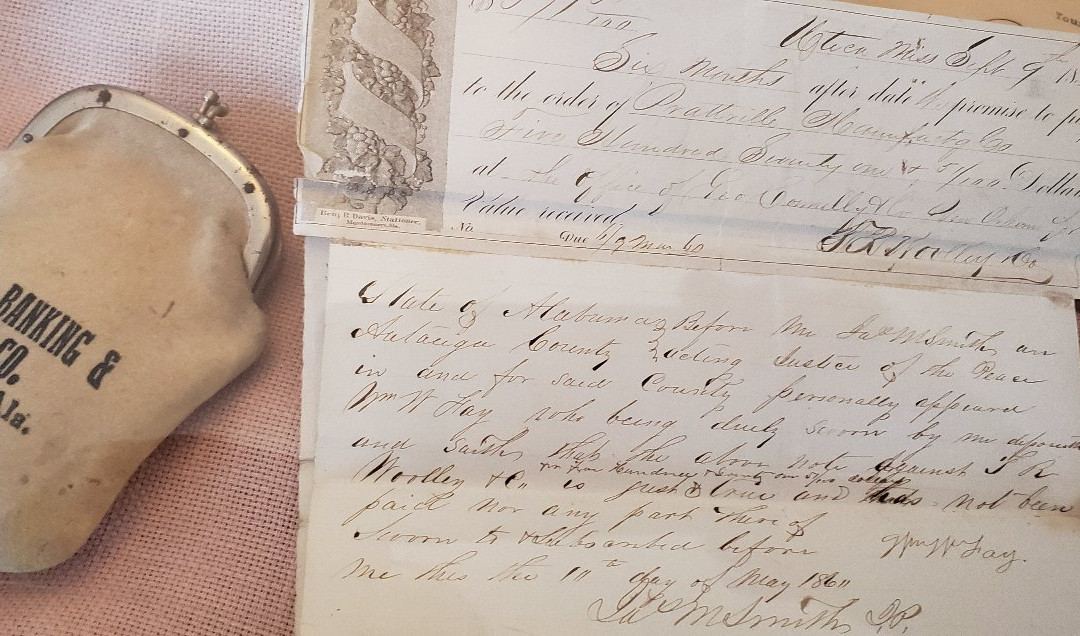 Utica Miss Sept 9th 18
Six Months after date promise to pay
to the order of Prattville Manufactg Co
Five Hundred Seventy one & 5/100 Dollars
at the office of Geo Connelly & Co New Orleans
Value received
No Due 9 Mar 60
T R Woolley & Co
Ben. F. Davis, Stationer,
Montgomery, Ala.
State of Alabama Before Me Jas M Smith an
Autauga County acting Justice of the Peace
in and for said County personally appeared
Wm W Fay who being duely sworn by me deposeth
and saith that the above note against T R
for Five Hundred & Seventy one 5/100 dollars
Woolley & Co is just & true and has not been
paid nor any part there of
Sworn to & subscribed before Wm W Fay.
me this the 11th day of May 1860
Jas M Smith J.P.
BANKING &
CO.
Ala.